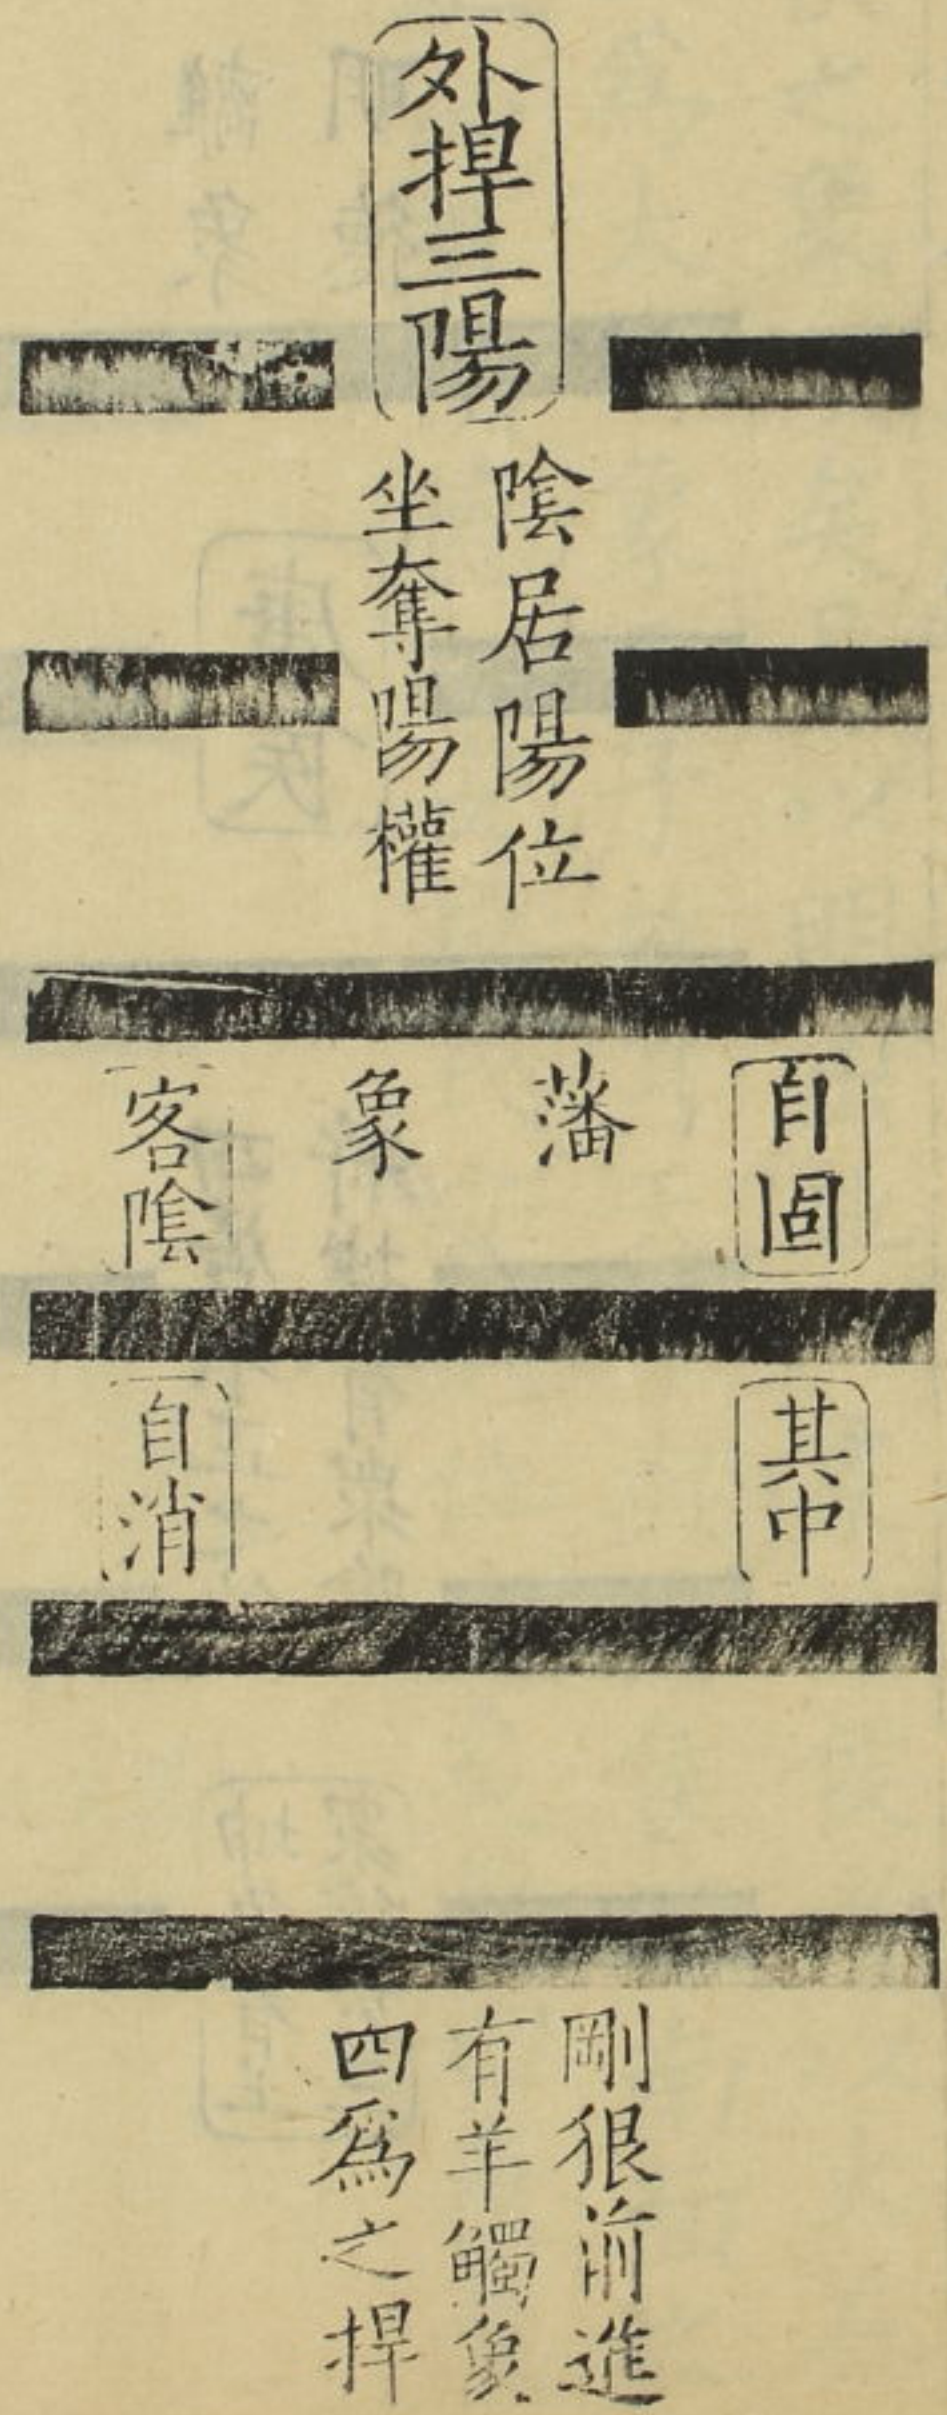 外捍三陽
陰居陽位
坐奪陽權
自固
藩
象
客陰
其中
自消
剛狠前進
有羊觸象
四爲之捍